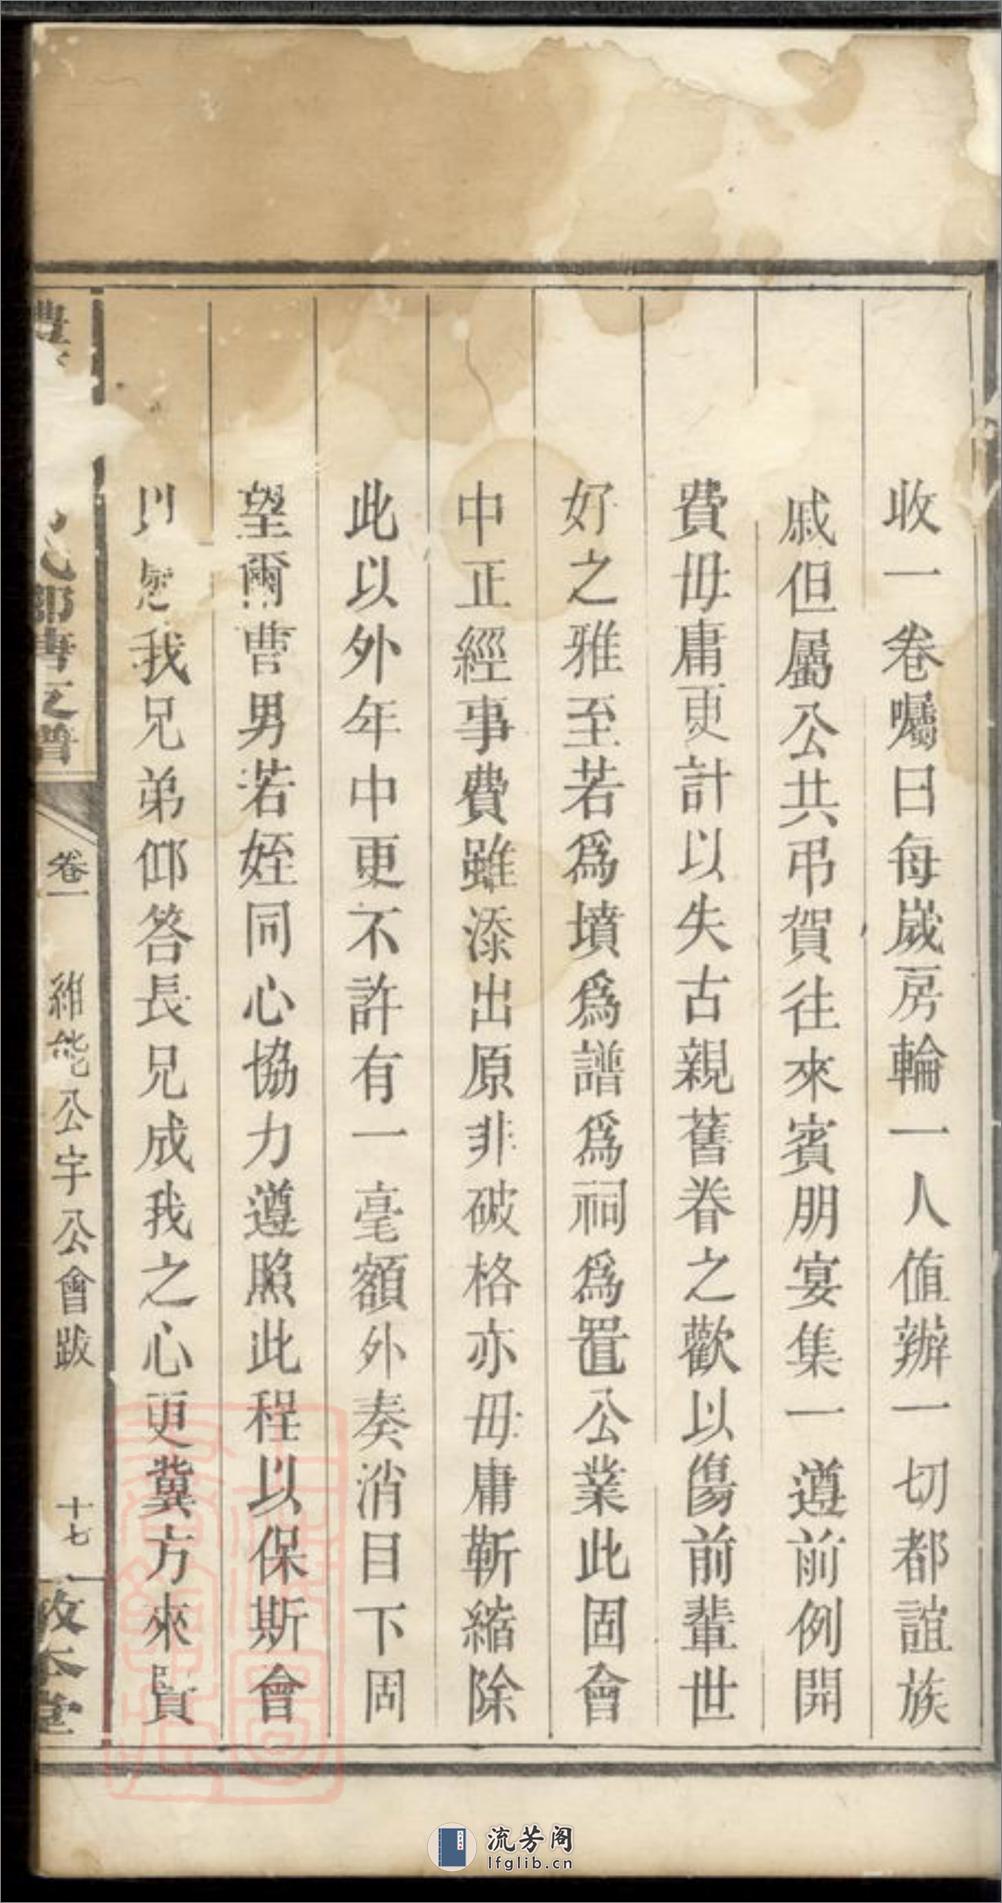 收一卷囑曰每歲房輪一人值辦一切都誼族
戚但屬公共弔賀往來賓朋宴集一遵前例開
費毋庸更計以失古親舊眷之歡以傷前輩世
好之雅至若爲墳爲譜爲祠爲置公業此固會
中正經事費雖添出原非破格亦毋庸靳縮除
此以外年中更不許有一毫額外奏消目下固
望爾曹男若姪同心協力遵照此程以保斯會
以慰我兄弟仰答長兄成我之心更冀方來賢
卷一
維能公宇公會跋
十七
流芳阁
lfglib.cn